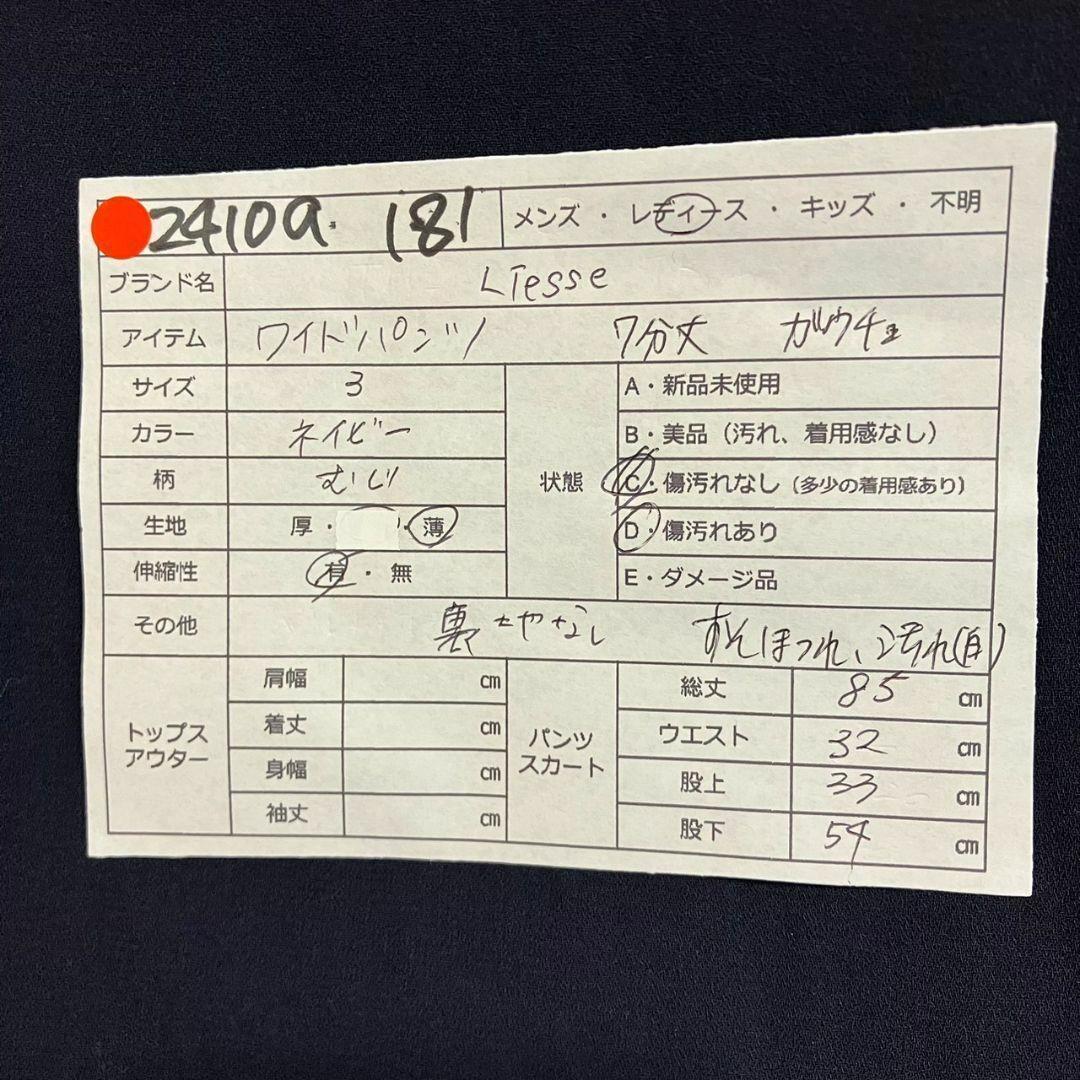 2410a. 181 メンズ ・ レディース ・ キッズ ・ 不明
ブランド名 Liesse
アイテム ワイドパンツ 7分丈 ガウチョ
サイズ 3
カラー ネイビー
柄 むじ
生地 厚・ ・薄
伸縮性 有・無
状態
A・新品未使用
B・美品（汚れ、着用感なし）
C・傷汚れなし（多少の着用感あり）
D・傷汚れあり
E・ダメージ品
その他 裏 なし すそほつれ、汚れ(白)
トップス
アウター
肩幅 ㎝
着丈 ㎝
身幅 ㎝
袖丈 ㎝
パンツ
スカート
総丈 85 ㎝
ウエスト 32 ㎝
股上 33 ㎝
股下 54 ㎝